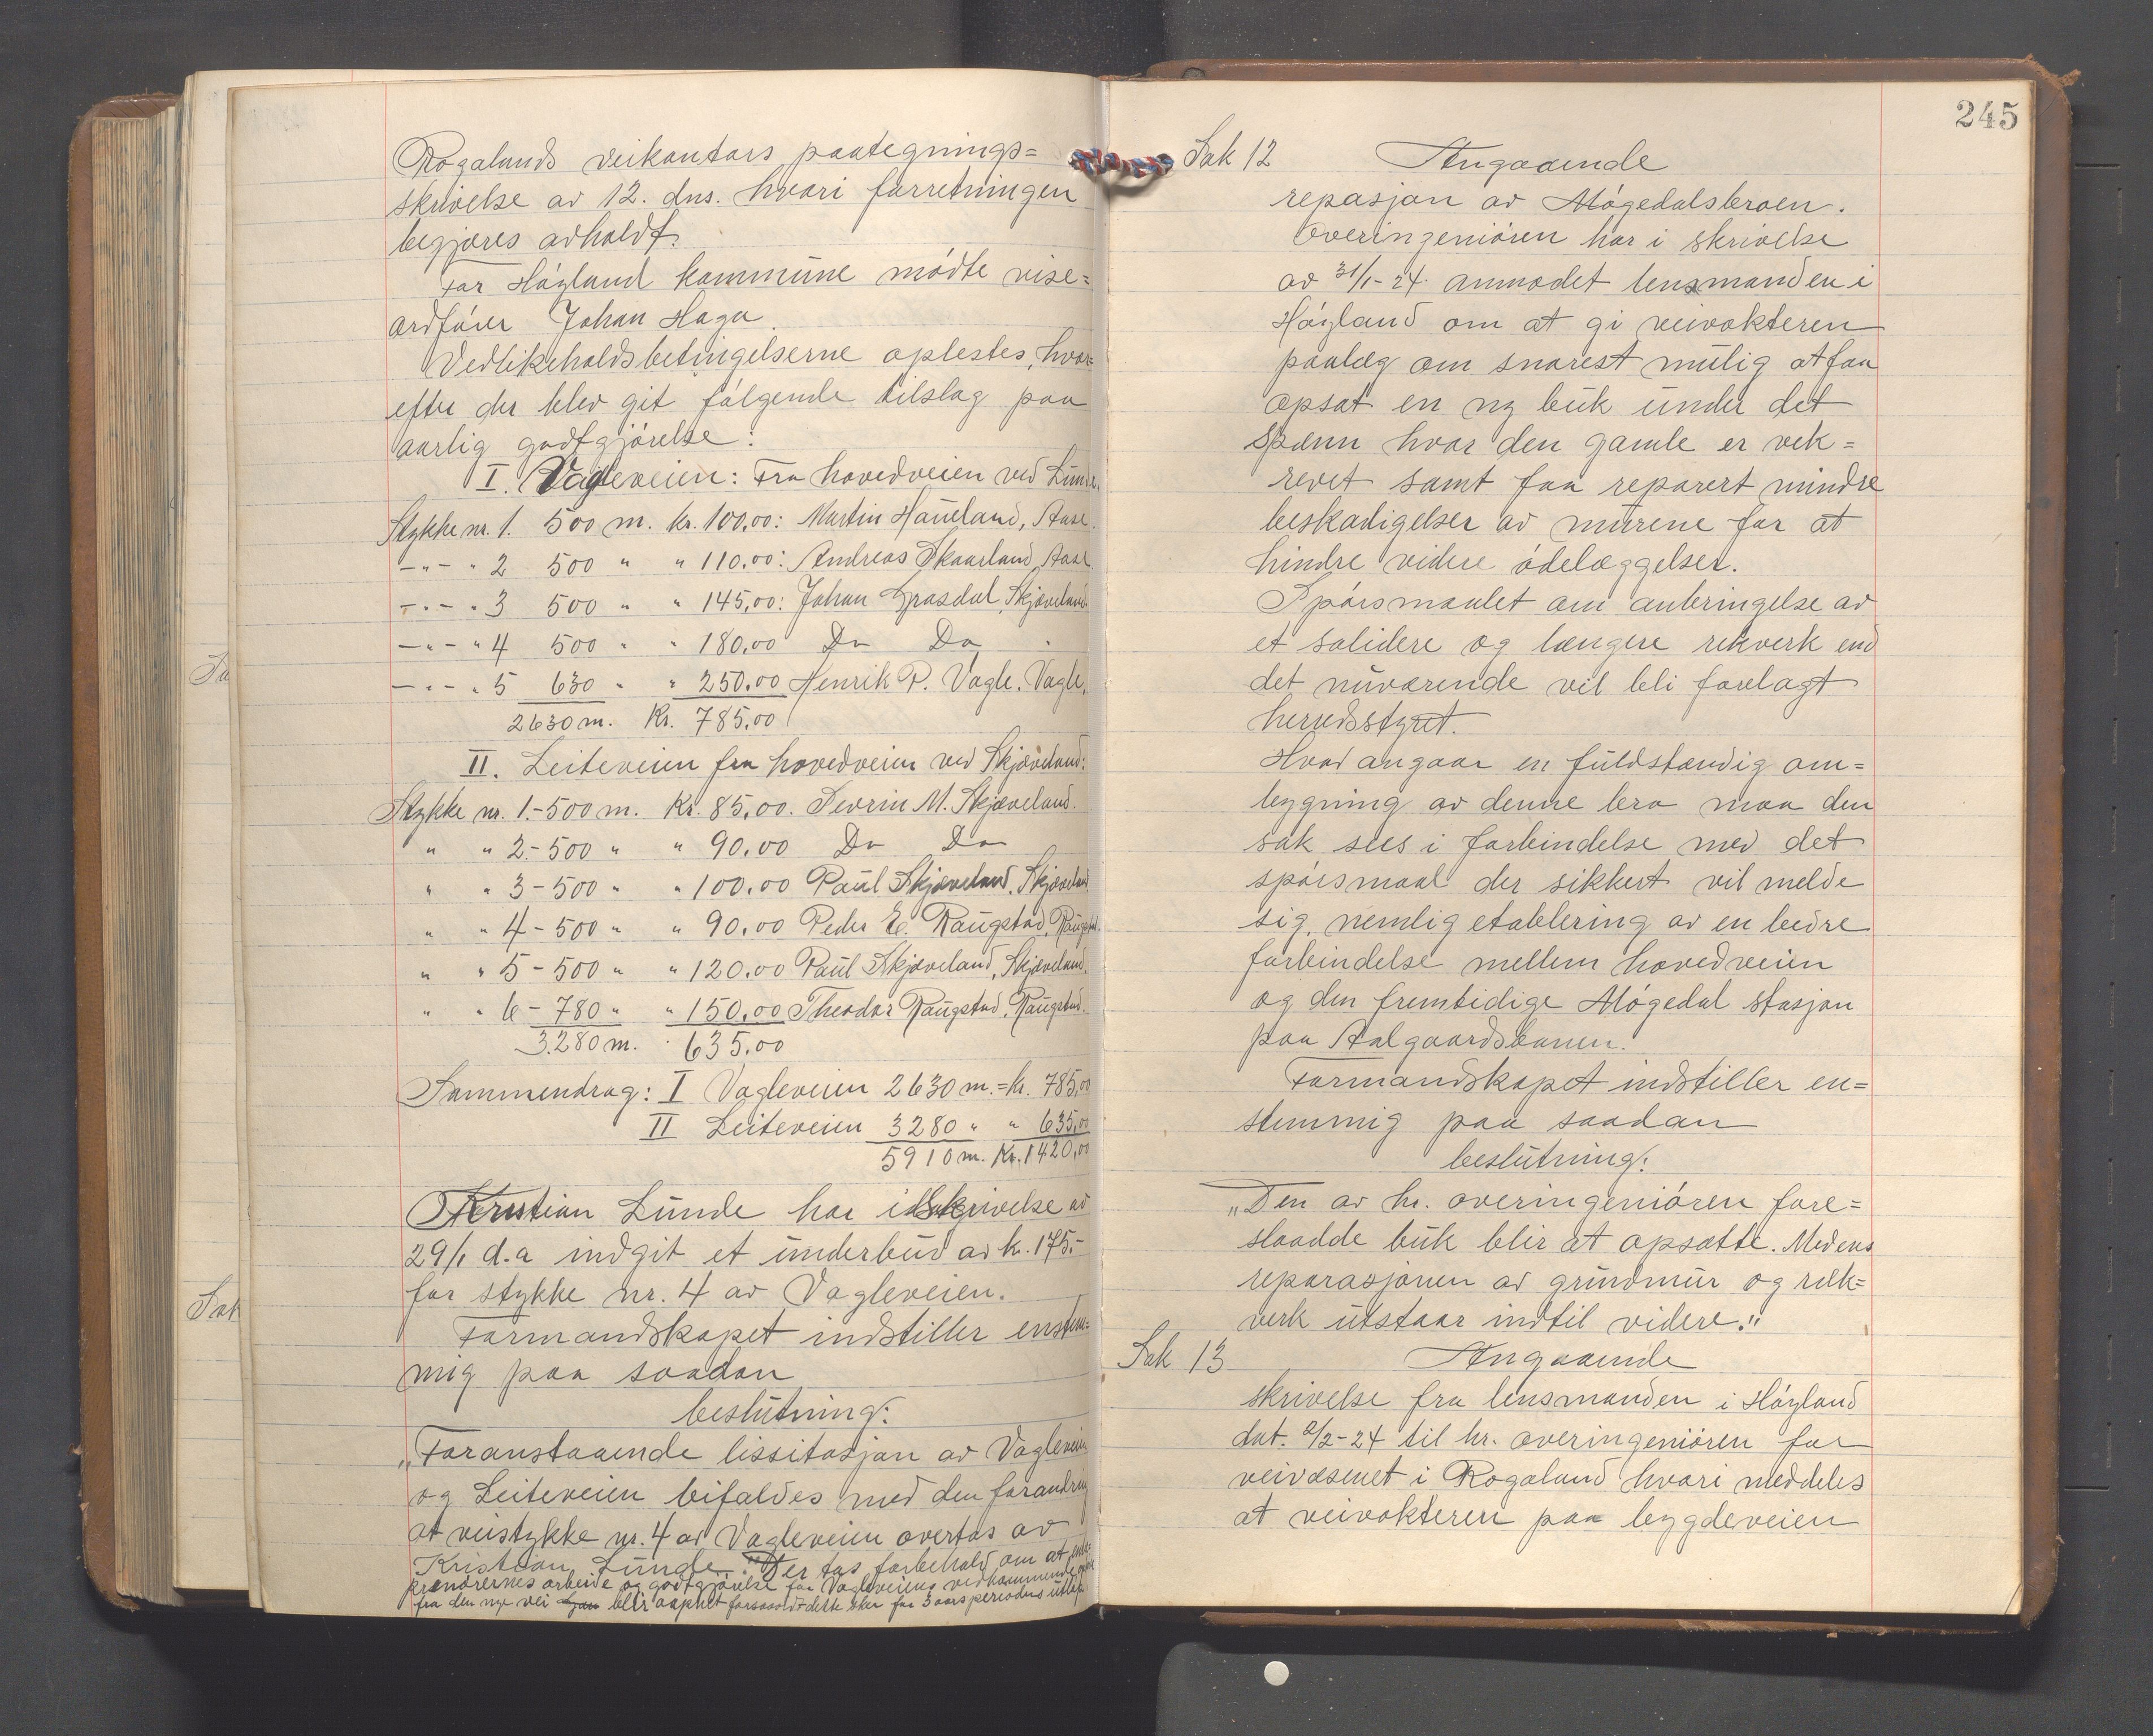 Rogalands veikontors paategnings=
skrivelse av 12. dns. hvori forretningen
begjæres avholdt.
For Høyland kommune mødte vise=
ordfører Johan Haga.
Vedlikeholdsbetingelserne oplestes, hvor=
efter der blev git følgende tilslag paa
aarlig godtgjørelse:
I. Vagleveien: Fra hovedveien ved Lunde.
Stykke nr. 1. 500 m. kr. 100,00: Martin Haueland, Aase.
-"- " 2 500 " " 110.00: Andreas Skaarland, Aase.
-"- " 3 500 " " 145,00: Johan Græsdal, Skjæveland.
-"- " 4 500 " " 180,00 Do Do "
-"- " 5 630 " " 250.00 Henrik P. Vagle, Vagle.
2630 m. Kr. 785,00
II. Leiteveien fra hovedveien ved Skjæveland:
Stykke nr. 1.-500 m. Kr. 85,00. Sevrin M. Skjæveland.
" " 2.-500 " " 90.00 Do Do
" " 3-500 " " 100.00 Paul Skjæveland, Skjæveland
" " 4-500 " " 90.00 Peder E. Raugstad, Raugstad.
" " 5-500 " " 120.00 Paul Skjæveland, Skjæveland.
" " 6-780 " " 150,00 Theodor Raugstad, Raugstad.
3.280 m. 635,00
Sammendrag: I Vagleveien 2630 m. = kr. 785,00
II Leiteveien 3280 " " 635,00
5910 m. Kr. 1420,00
Kristian Lunde har i skrivelse av
29/1 d.a indgit et underbud av kr. 175,-
for stykke nr. 4 av Vagleveien.
Formandskapet indstiller enstem=
mig paa saadan
beslutning:
"Foranstaaende lissitasjon av Vagleveien
og Leiteveien bifaldes med den forandring
at veistykke nr. 4 av Vagleveien overtas av
Kristian Lunde." Der tas forbehold om at
prenørernes arbeide og godtgjørelse for Vagleveiens vedkommende
fra den nye vei blir aapnet forsaavidt dette sker før 3 aars periodens utløp
245
Sak 12 Angaaende
repasjon av Møgedalsbroen.
Overingeniøren har i skrivelse
av 31/1-24 anmodet lensmanden i
Høyland om at gi veivokteren
paalæg om snarest mulig at faa
opsat en ny buk under det
spænn hvor den gamle er vek=
revet samt faa reparert mindre
beskadigelser av murene for at
hindre videre ødelæggelser.
Spørsmaalet om anbringelse av
et solidere og længere rekverk end
det nuværende vil bli forelagt
herredsstyret.
Hvad angaar en fuldstændig om=
bygning av denne bro maa den
sak sees i forbindelse med det
spørsmaal der sikkert vil melde
sig, nemlig etablering av en bedre
forbindelse mellem hovedveien
og den fremtidige Møgedal stasjon
paa Aalgaardsbanen.
Formandskapet indstiller en=
stemmig paa saadan
beslutning:
"Den av hr. overingeniøren fore=
slaadde buk blir at opsætte. Medens
reparasjonen av grundmur og rek=
verk utstaar indtil videre."
Sak 13 Angaaende
skrivelse fra lensmanden i Høyland
dat. 2/2-24 til hr. overingeniøren for
veivæsenet i Rogaland hvori meddeles
at veivokteren paa bygdeveien